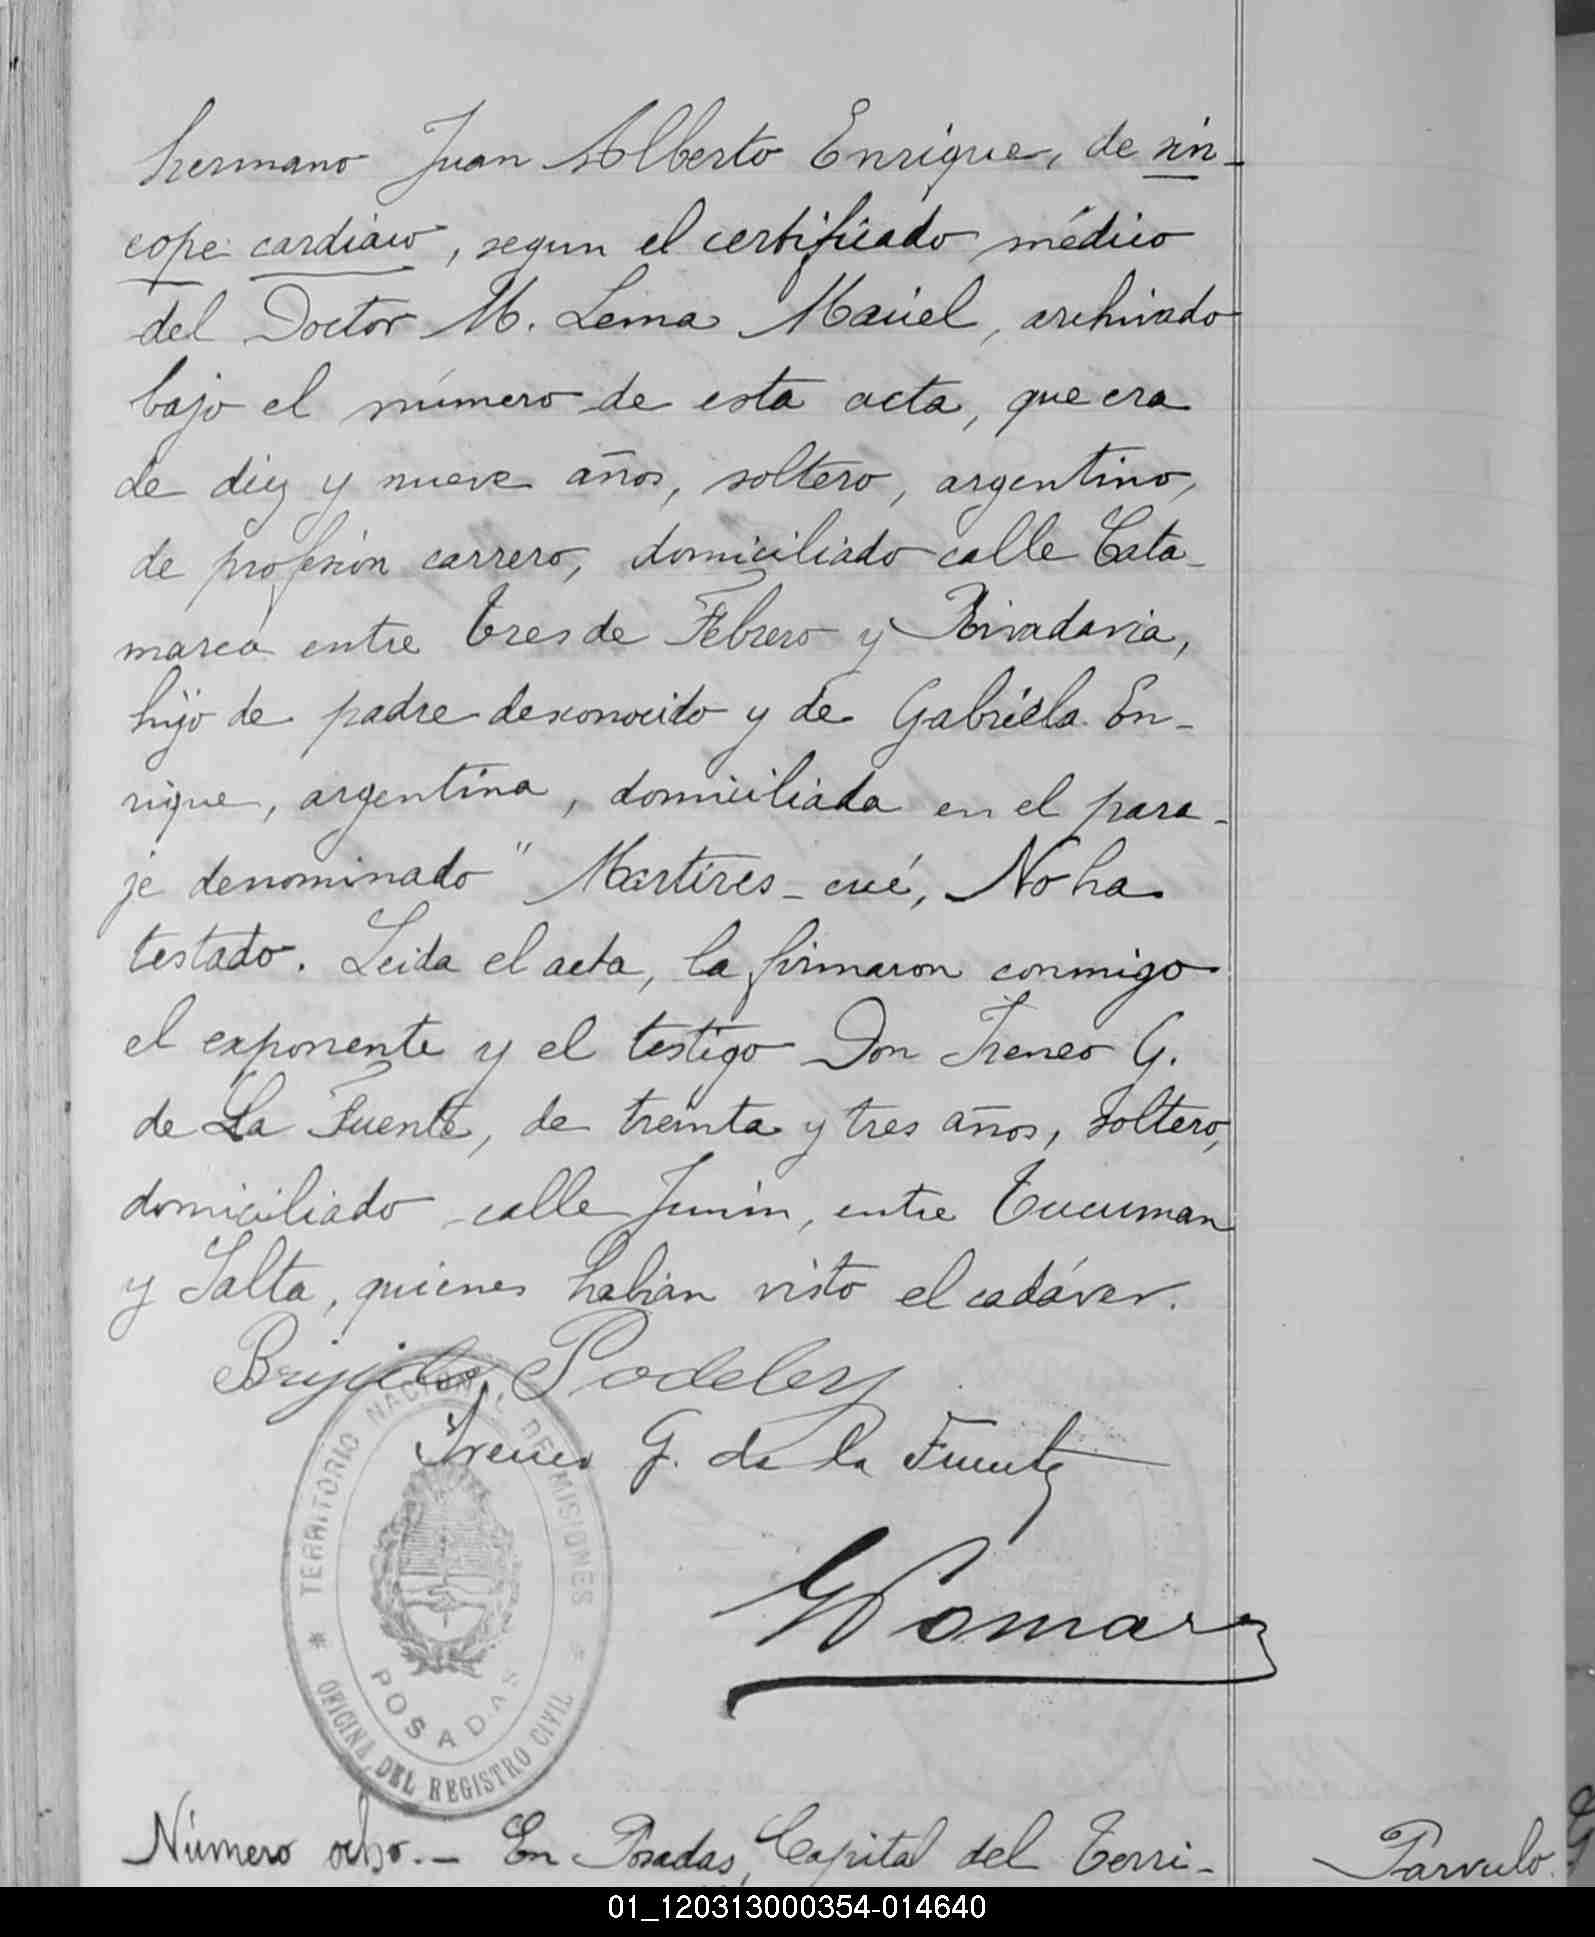 hermano Juan Alberto Enrique, de sín-
cope cardiaco, segun el certificado médico
del Doctor M. Lema Maciel, archivado
bajo el número de esta acta, que era
de diez y nueve años, soltero, argentino,
de profesión carrero, domiciliado calle Cata-
marca entre Tres de Febrero y Rivadavia,
hijo de padre desconocido y de Gabriela En-
rique, argentina, domiciliada en el para-
je denominado " Martires-cué, No ha
testado. Leida el acta, la firmaron conmigo
el exponente y el testigo Don Ireneo G.
de La Fuente, de treinta y tres años, soltero,
domiciliado calle Junin, entre Tucuman
y Salta, quienes habian visto el cadáver.
Brijido Podeley
Ireneo G. de la Fuente
TERRITORIO NACIONAL DE MISIONES
POSADAS
OFICINA DEL REGISTRO CIVIL
Número ocho.- En Posadas, Capital del Terri-
Parvulo.
01_120313000354-014640